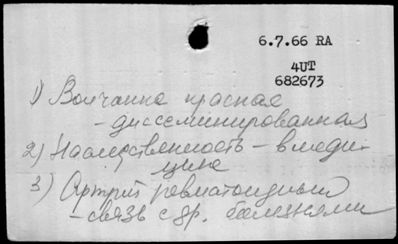 6.7.66 RA
4UT
682673
1) Волчанка красная
- диссеминированная
2) Наследственность - в меди-
цине
3) Артрит ревматоидный
- связь с др. болезнями